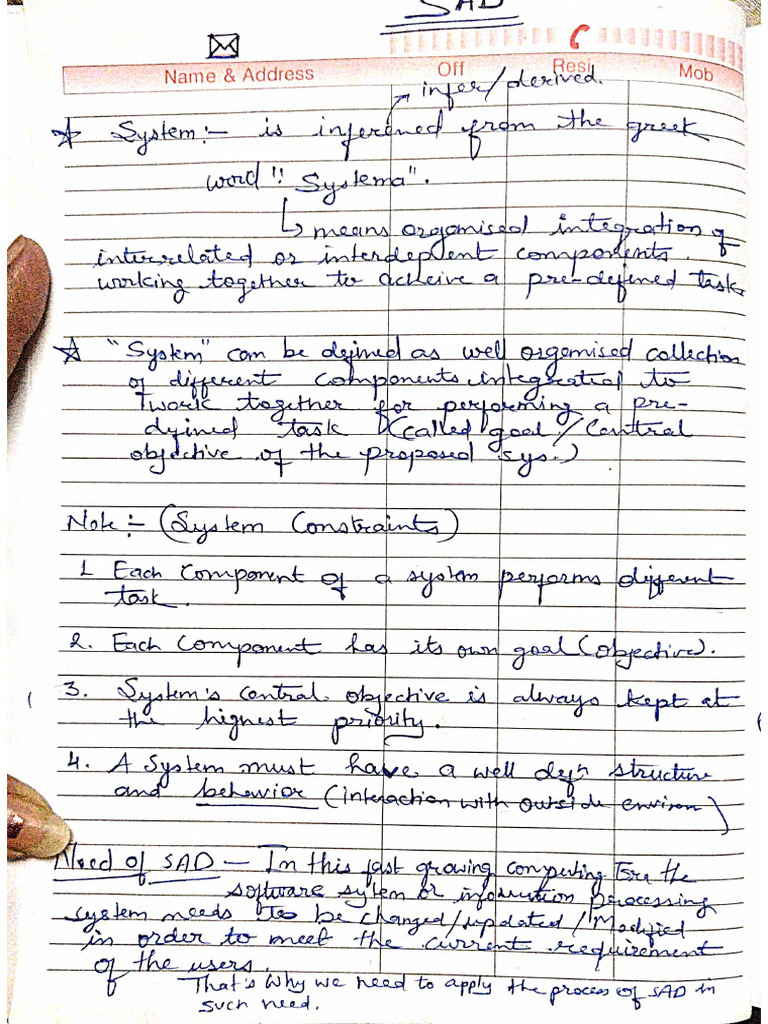 SAD
Name & Address Off Resi Mob
infer/derived.
☆ System:- is inferened from the greek
word "Systema".
↳ means organised integration of
interrelated or interdepent components.
working together to acheive a pre-defined task
☆ "System" can be defined as well organised collection
of different components integrated to
work together for performing a pre-
defined task (called goal/Central
objective of the proposed sys.)
Note:- (System Constraints)
1 Each Component of a system performs different
task.
2. Each Component has its own goal (objective).
3. System's central objective is always kept at
the highest priority.
4. A System must have a well defn structure
and behavior (interaction with outside environ)
Need of SAD - In this fast growing computing Era the
software system or information processing
system needs to be changed/updated/Modified
in order to meet the current requirement
of the users.
That's Why we need to apply the process of SAD in
such need.